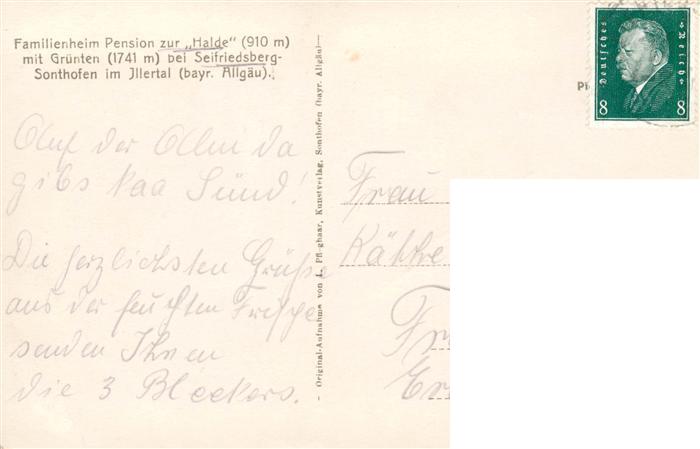 Familienheim Pension zur „Halde" (910 m)
mit Grünten (1741 m) bei Seifriedsberg-
Sonthofen im Jllertal (bayr. Allgäu).
Auf der Alm da
gibs kaa Sünd!
Die herzlichsten Grüße
aus der feuchten Frische
senden Ihnen
die 3 Bleekers.
Original-Aufnahme von L. Pfleghaar, Kunstverlag, Sonthofen (bayr. Allgäu)
Deutsches Reich
8 8
Frau
Käthe
Fr
Er